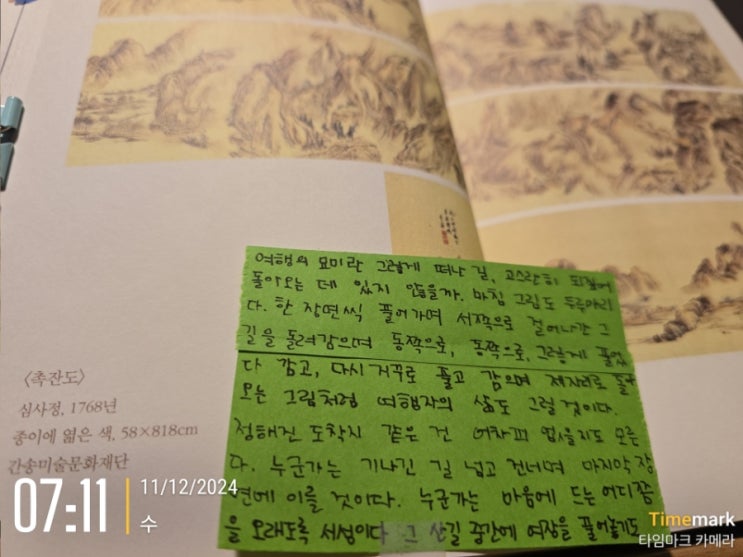 여행의 묘미란 그렇게 떠난 길, 고스란히 되짚어
돌아오는 데 있지 않을까. 마침 그림도 두루마리
다. 한 장면씩 풀어가며 서쪽으로 걸어나간 그
길을 돌려감으며 동쪽으로, 동쪽으로, 그렇게 풀었
다 감고, 다시 거꾸로 풀고 감으며 제자리로 돌아
오는 그림처럼 여행자의 삶도 그럴 것이다.
정해진 도착지 같은 건 어차피 없을지도 모른
다. 누군가는 기나긴 길 넘고 건너며 마지막 장
면에 이를 것이다. 누군가는 마음에 드는 어디쯤
을 오래도록 서성이다 그 산길 중간에 여장을 풀어놓기도
〈촉잔도〉
심사정, 1768년
종이에 엷은 색, 58×818cm
간송미술문화재단
07:11
11/12/2024
수
Timemark
타임마크 카메라